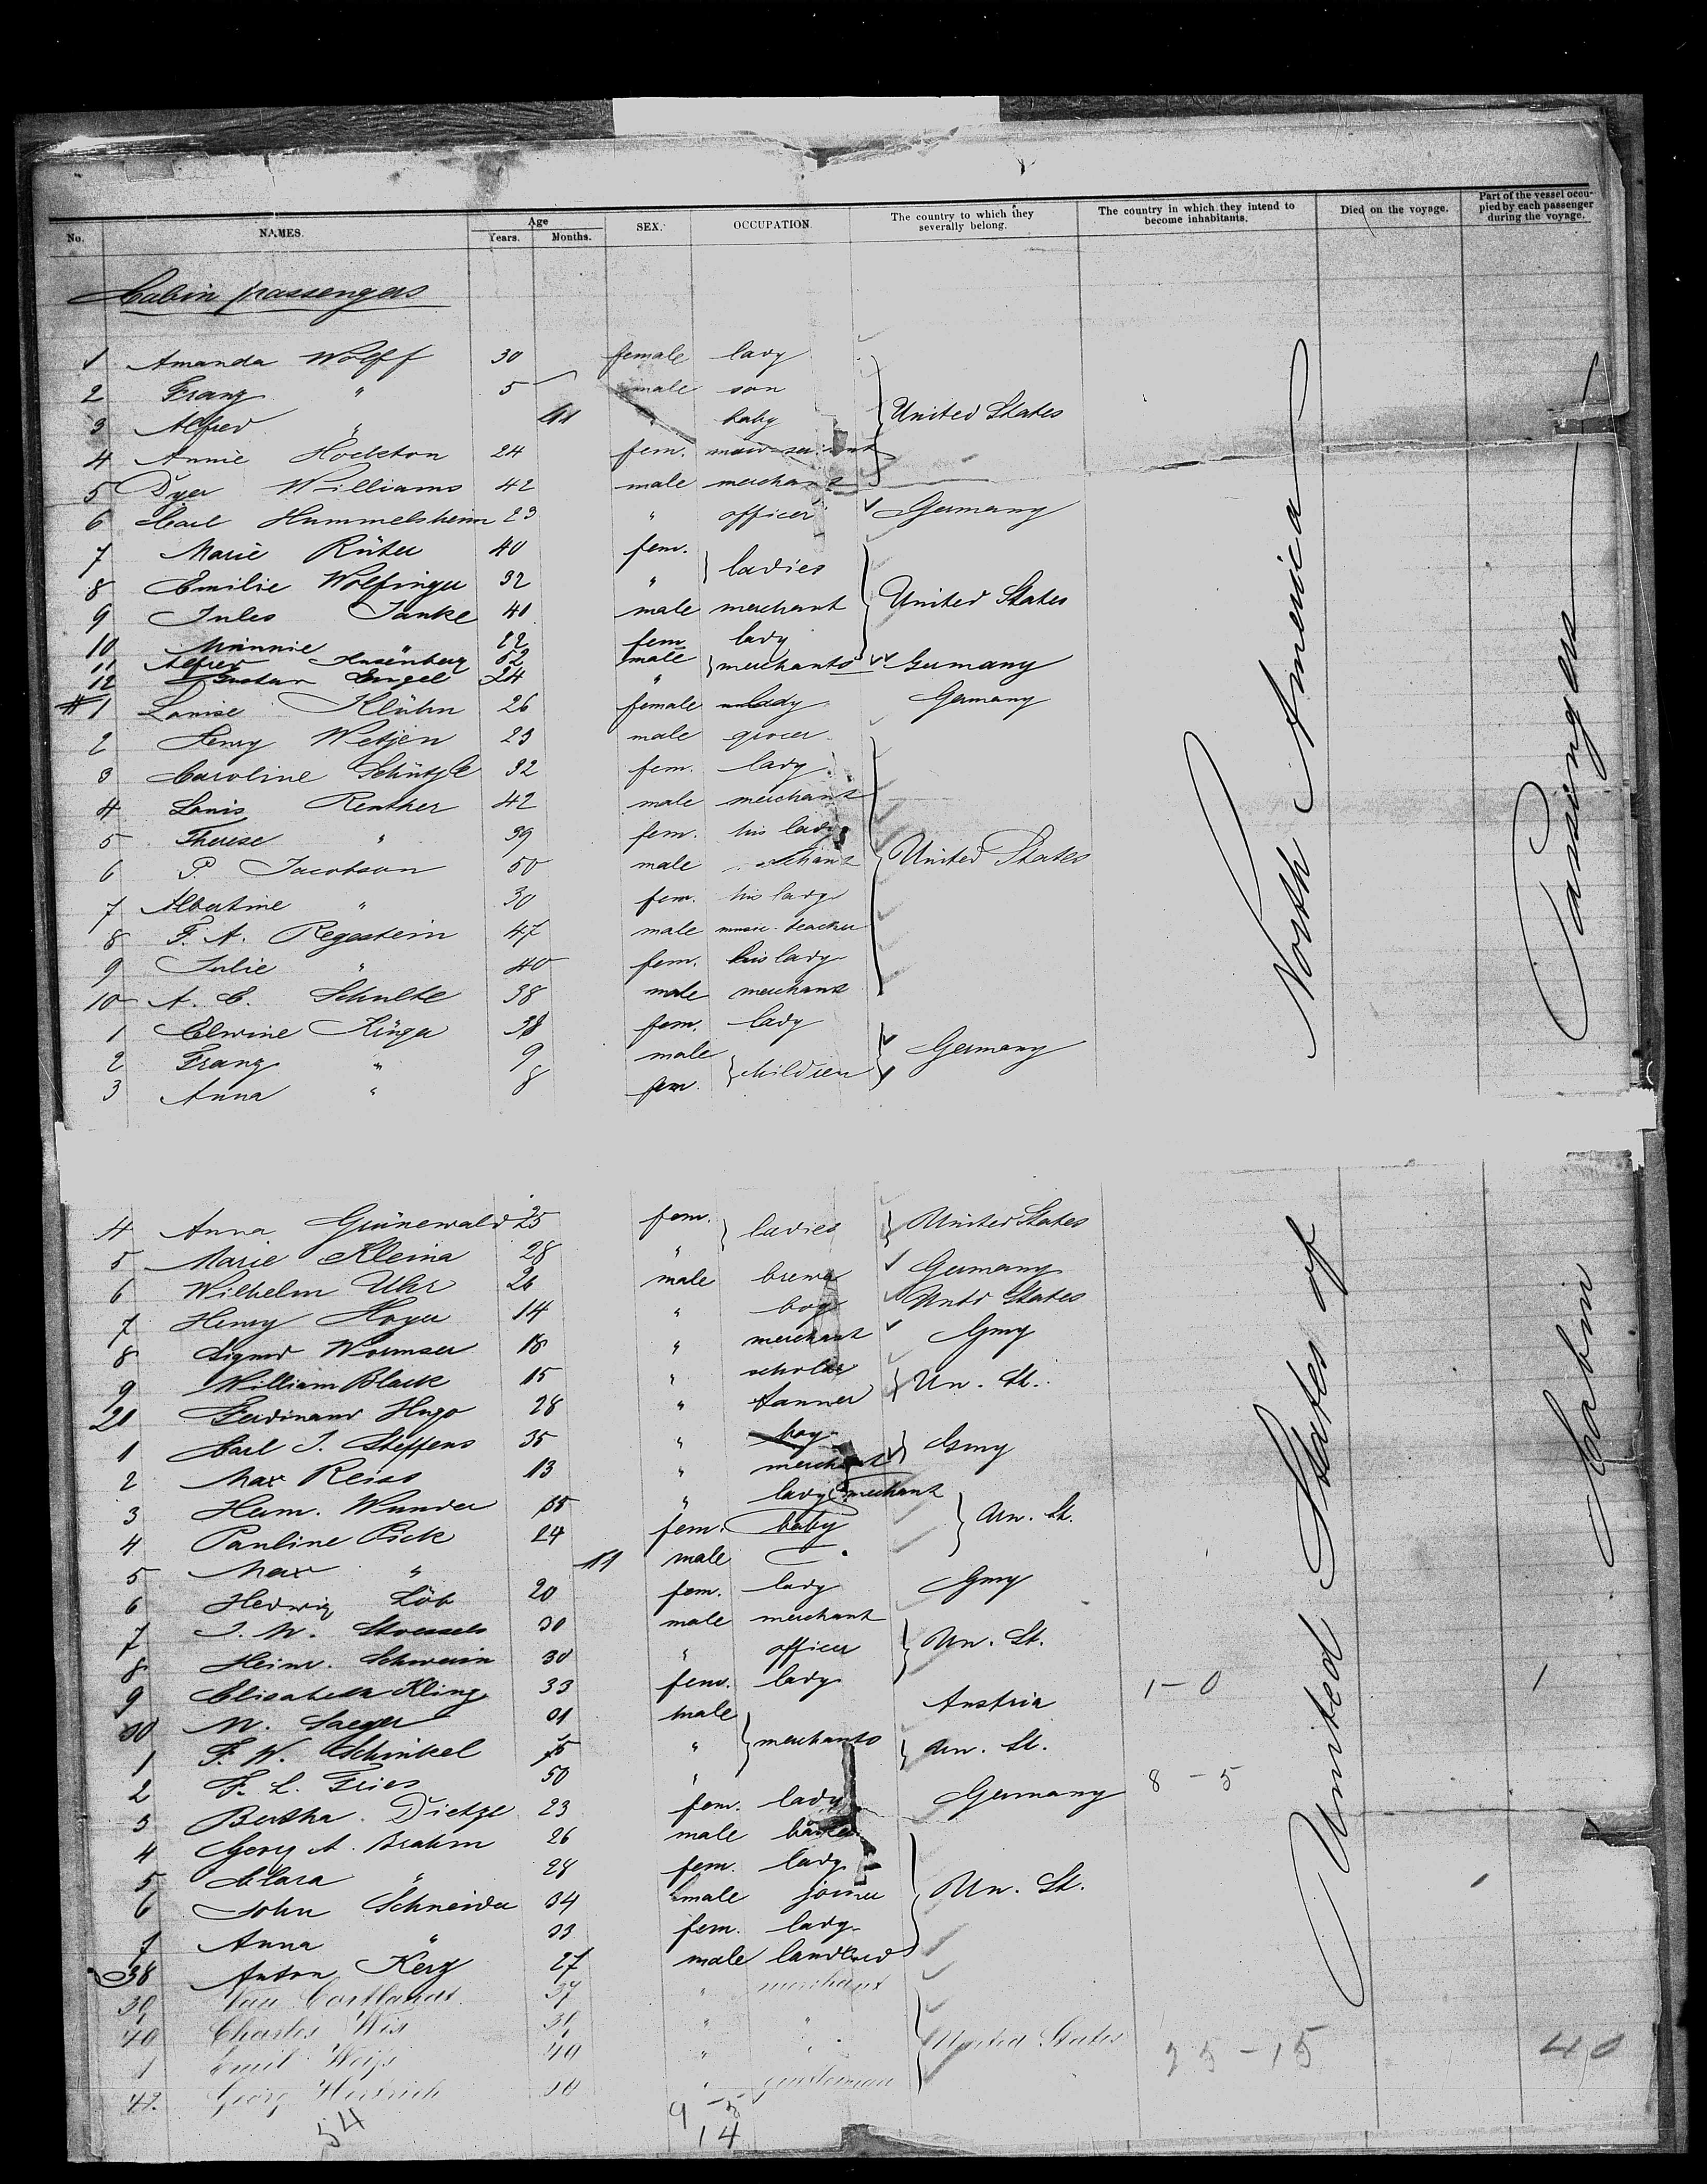 No. NAMES. Age Years. Months. SEX. OCCUPATION. The country to which they severally belong. The country in which they intend to become inhabitants. Died on the voyage. Part of the vessel occupied by each passenger during the voyage.
Cabin passengers
1 Amanda Wolff 30 female lady
2 Franz " 5 male son
3 Alfred " 11 " baby United States
4 Annie Hockton 24 fem.
5 Dyer Williams 42 male merchant
6 Carl Hummelsheim 23 " officer Germany
7 Marie Rüter 40 fem.
8 Emilie Wolfinger 32 " ladies
9 Jules Janke 40 male merchant United States
10 Minnie " 22 fem. lady
11 Alfred Husenberg 52 male merchants Germany
12 Gustav Engel 24 "
1 Louise Klühn 26 female lady Germany
2 Henry Wetjen 23 male grocer
3 Caroline Schützle 32 fem. lady
4 Louis Renther 42 male merchant
5 Therese " 39 fem. his lady
6 P Jacobson 50 male United States
7 Albertine " 30 fem. his lady
8 F. A. Regestein 47 male music-teacher
9 Julie " 40 fem. his lady
10 A. C. Schulte 38 male merchant
1 Elwine Krüger 38 fem. lady
2 Franz " 9 male Germany
3 Anna " 8 fem. children
4 Anna Grünewald 25 fem. ladies United States
5 Marie Kleina 28 "
6 Wilhelm Uhr 26 male brewer Germany
7 Henry Hoyer 14 " boy Untd States
8 Sigmd Wormser 18 " merchant Gmy
9 William Black 15 " scholar Un. St.
20 Ferdinand Hugo 28 " tanner
1 Carl J. Steffens 35 " boy Gmy
2 Max Reiss 13 " merchant
3 Herm. Wunder " lady merchant
4 Pauline Pick 24 fem. baby Un. St.
5 Max " 11 male
6 Hedwig Löb 20 fem. lady Gmy
7 J. W. 30 male merchant
8 Heinr. Schwerin 30 " officer Un. St.
9 Elisabeth Kling 33 fem. lady
30 M. Saeger 31 male Austria 1-0 1
1 F. W. Schinkel " merchants Un. St.
2 F. L. Fries 50 "
3 Bertha Dietze 23 fem. lady Germany 8-5
4 Georg A. Brahm 26 male
5 Clara " 28 fem. lady
6 John Schneider 34 male joiner Un. St.
7 Anna " 33 fem. lady
38 Anton Kerz 27 male landlord
39 Van Cortlandt 37 " merchant
40 Charles Wis " "
1 Emil Weiß 40 " " United States 25-15 40
42. Georg Hertrich " gentleman
54 9-5
14
United States of North America
Cabin Passengers